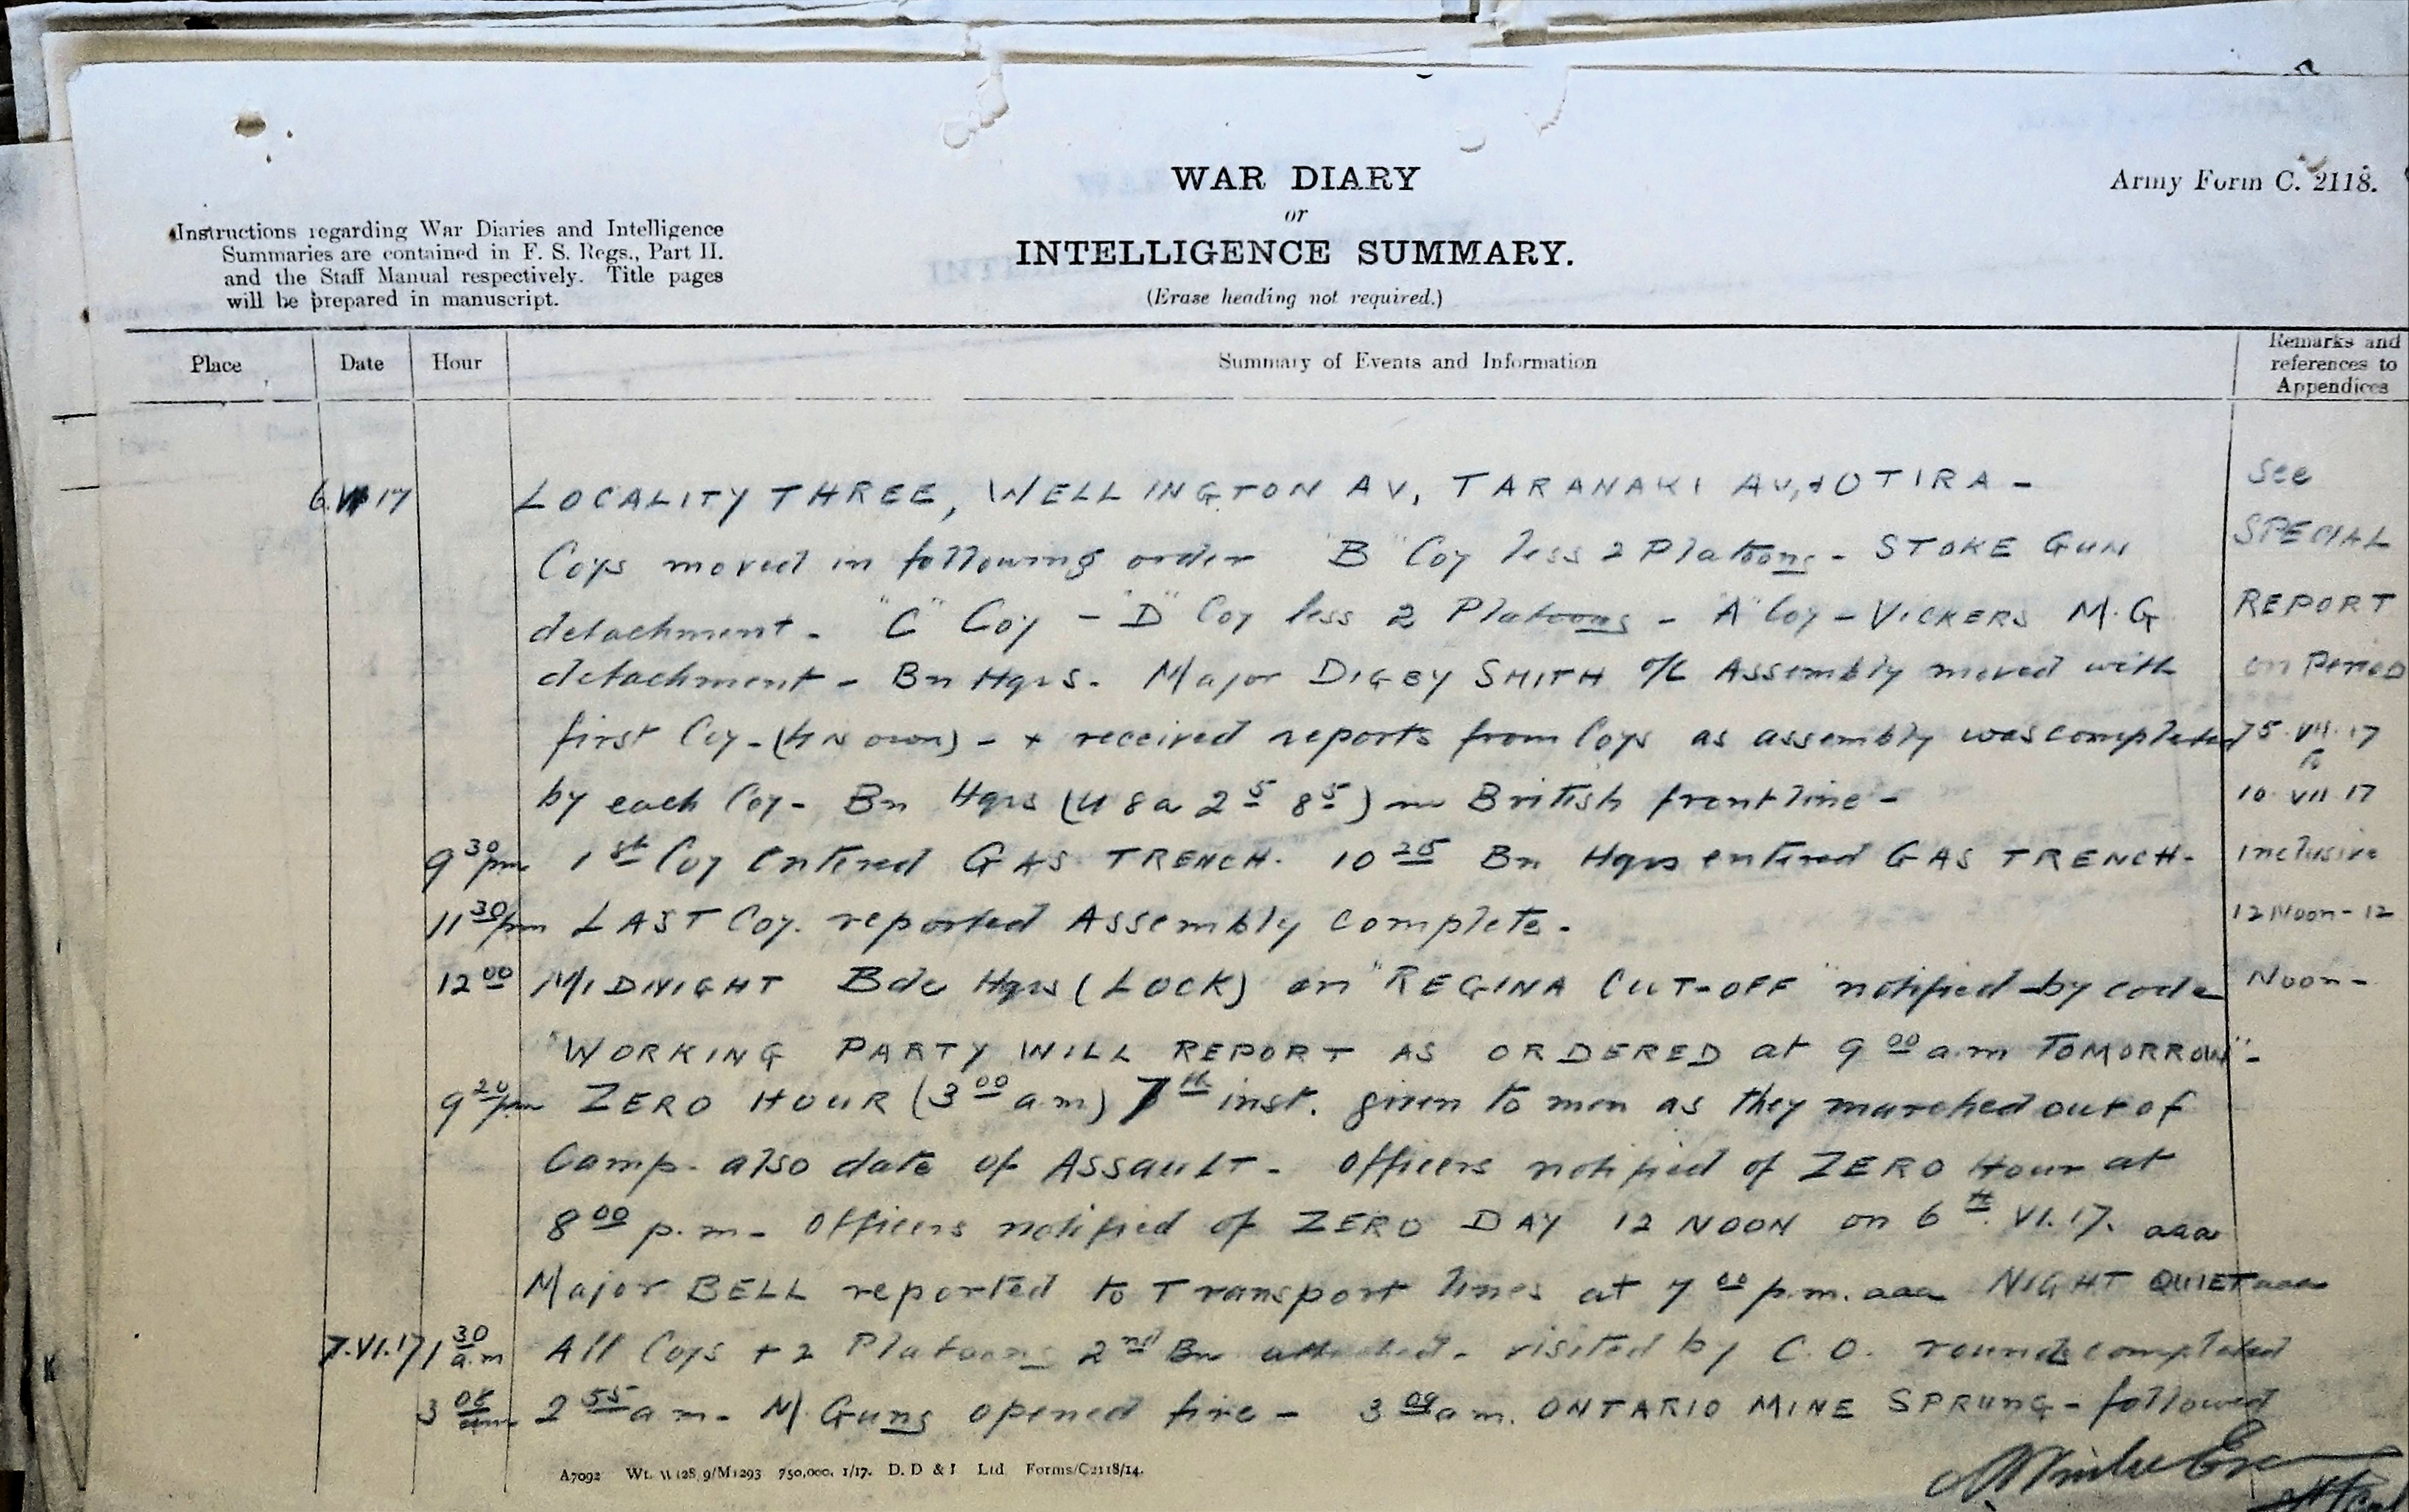 WAR DIARY
or
INTELLIGENCE SUMMARY.
(Erase heading not required.)
Army Form C. 2118.
Instructions regarding War Diaries and Intelligence
Summaries are contained in F. S. Regs., Part II.
and the Staff Manual respectively. Title pages
will be prepared in manuscript.
Place Date Hour Summary of Events and Information
Remarks and
references to
Appendices
6.VI.17 LOCALITY THREE, WELLINGTON AV, TARANAKI AV, + OTIRA -
Coys moved in following order "B" Coy less 2 Platoons - STOKE GUN
detachment - "C" Coy - "D" Coy less 2 Platoons - "A" Coy - VICKERS M.G
detachment - Bn Hqrs. Major DIGBY SMITH o/c Assembly moved with
first Coy - - + received reports from Coys as assembly was completed
by each Coy - Bn Hqrs (U 8 a 2 5 8 5) in British front line -
9 30 pm 1st Coy entered GAS TRENCH. 10 25 Bn Hqrs entered GAS TRENCH -
11 30 pm LAST Coy. reported Assembly complete -
12 00 MIDNIGHT Bde Hqrs (LOCK) in "REGINA CUT-OFF" notified by code
"WORKING PARTY WILL REPORT AS ORDERED at 9 00 a.m TOMORROW" -
9 20 pm ZERO HOUR (3 00 a.m) 7th inst. given to men as they marched out of
Camp - also date of ASSAULT - Officers notified of ZERO Hour at
8 00 p.m - Officers notified of ZERO DAY 12 NOON on 6th VI.17. aaa
Major BELL reported to Transport lines at 7 00 p.m. aaa NIGHT QUIET aaa
7.VI.17 1 30 a.m All Coys + 2 Platoons 2nd Bn attached - visited by C.O. rounds completed
3 am 2 55 a m - M. Guns opened fire - 3 a m. ONTARIO MINE SPRUNG - followed
See
SPECIAL
REPORT
on Period
5.VII.17
to
10 VII 17
inclusive
12 Noon - 12
Noon -
A7092 Wt. W128 9/M1293 750,000. 1/17. D. D & L Ltd Forms/C2118/14.